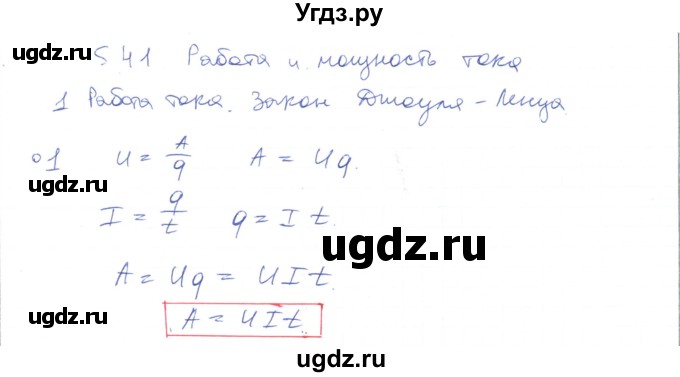 Угдз.ру
§ 41 Работа и мощность тока
ugdz.ru
1 Работа тока. Закон Джоуля - Ленца
○1 U = A/q A = Uq.
ugdz.ru
I = q/t q = I t.
ugdz.ru
A = Uq = U I t.
ugdz.ru
A = U I t.
ugdz.ru